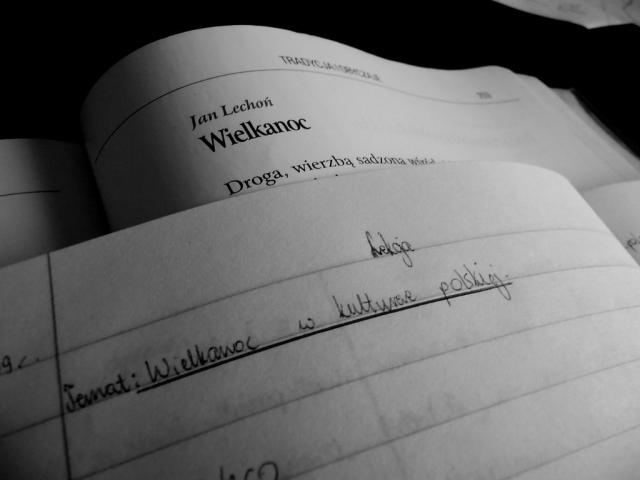 TRADYCJA I OBYCZAJE
Jan Lechoń
Wielkanoc
Droga, wierzbą sadzona wśród
Lekcja
Temat: Wielkanoc w kulturze polskiej.
9 r.